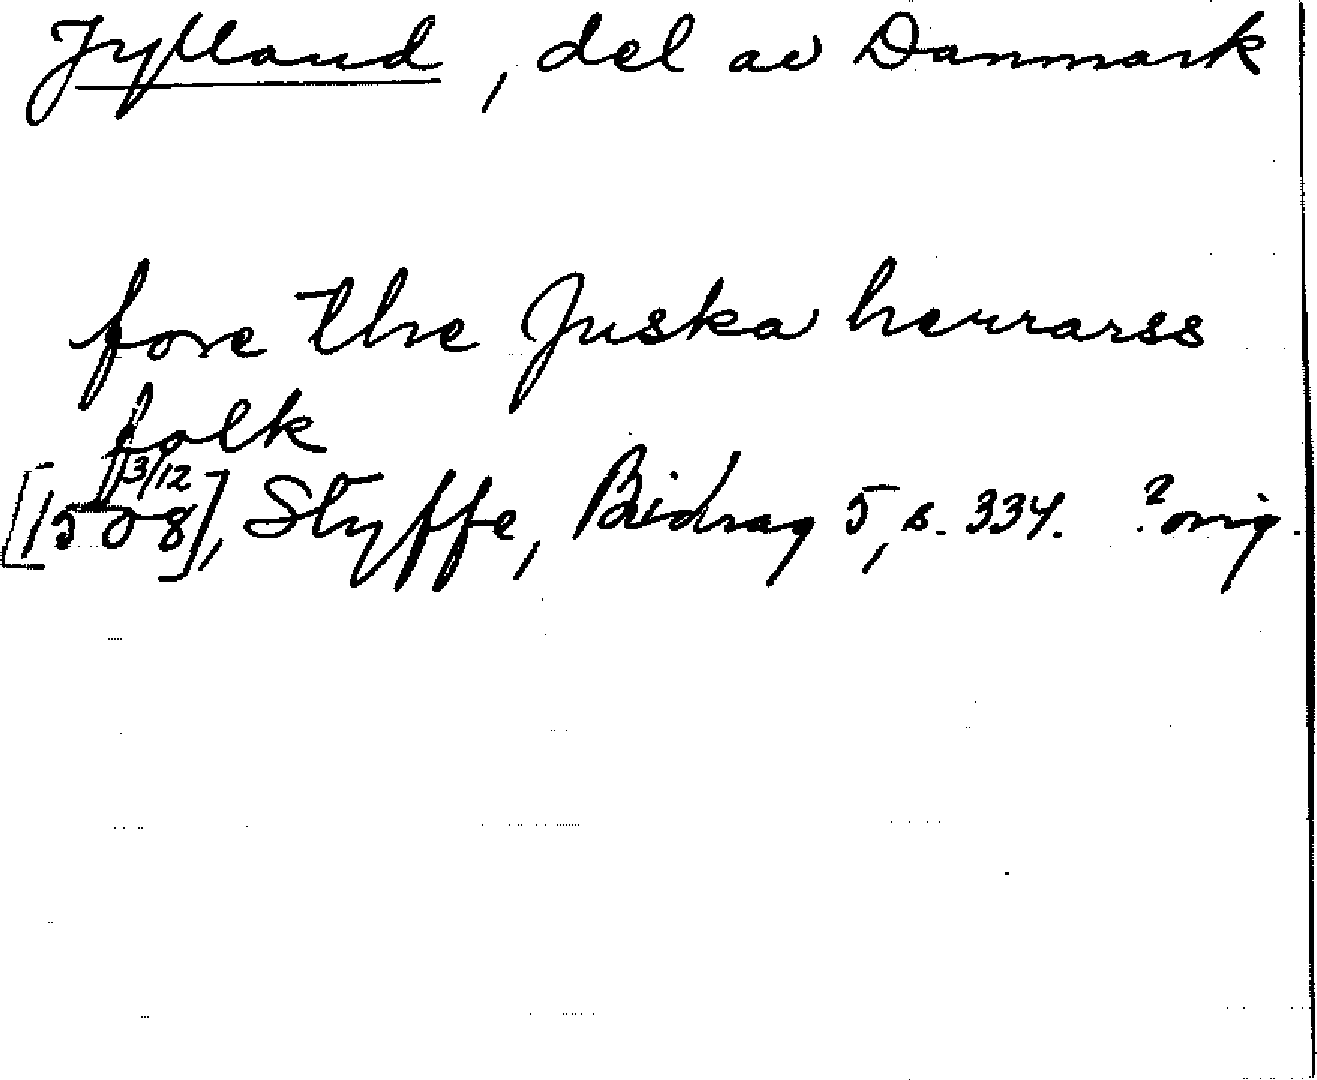 Jylland, del av Danmark
fore the Juska herrarss
folk
[1508 3/12], Styffe, Bidrag 5, s. 334. ? orig.